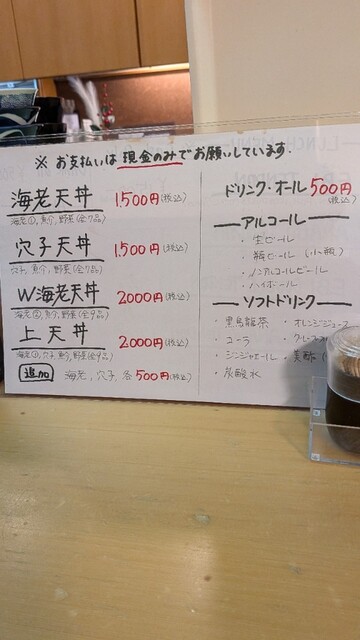 ※ お支払いは 現金のみでお願いしています.
海老天丼 1,500円(税込)
海老①,魚介,野菜(全7品)
穴子天丼 1,500円(税込)
穴子,魚介,野菜(全7品)
W海老天丼 2000円(税込)
海老②,魚介,野菜(全9品)
上天丼 2000円(税込)
海老①,穴子,魚介,野菜(全9品)
追加 海老,穴子,各500円(税込)
ドリンク・オール500円
(税込)
アルコール
・生ビール
・瓶ビール(小瓶)
・ノンアルコールビール
・ハイボール
ソフトドリンク
・黒烏龍茶 ・オレンジジュース
・コーラ
・ジンジャエール ・美酢
・炭酸水